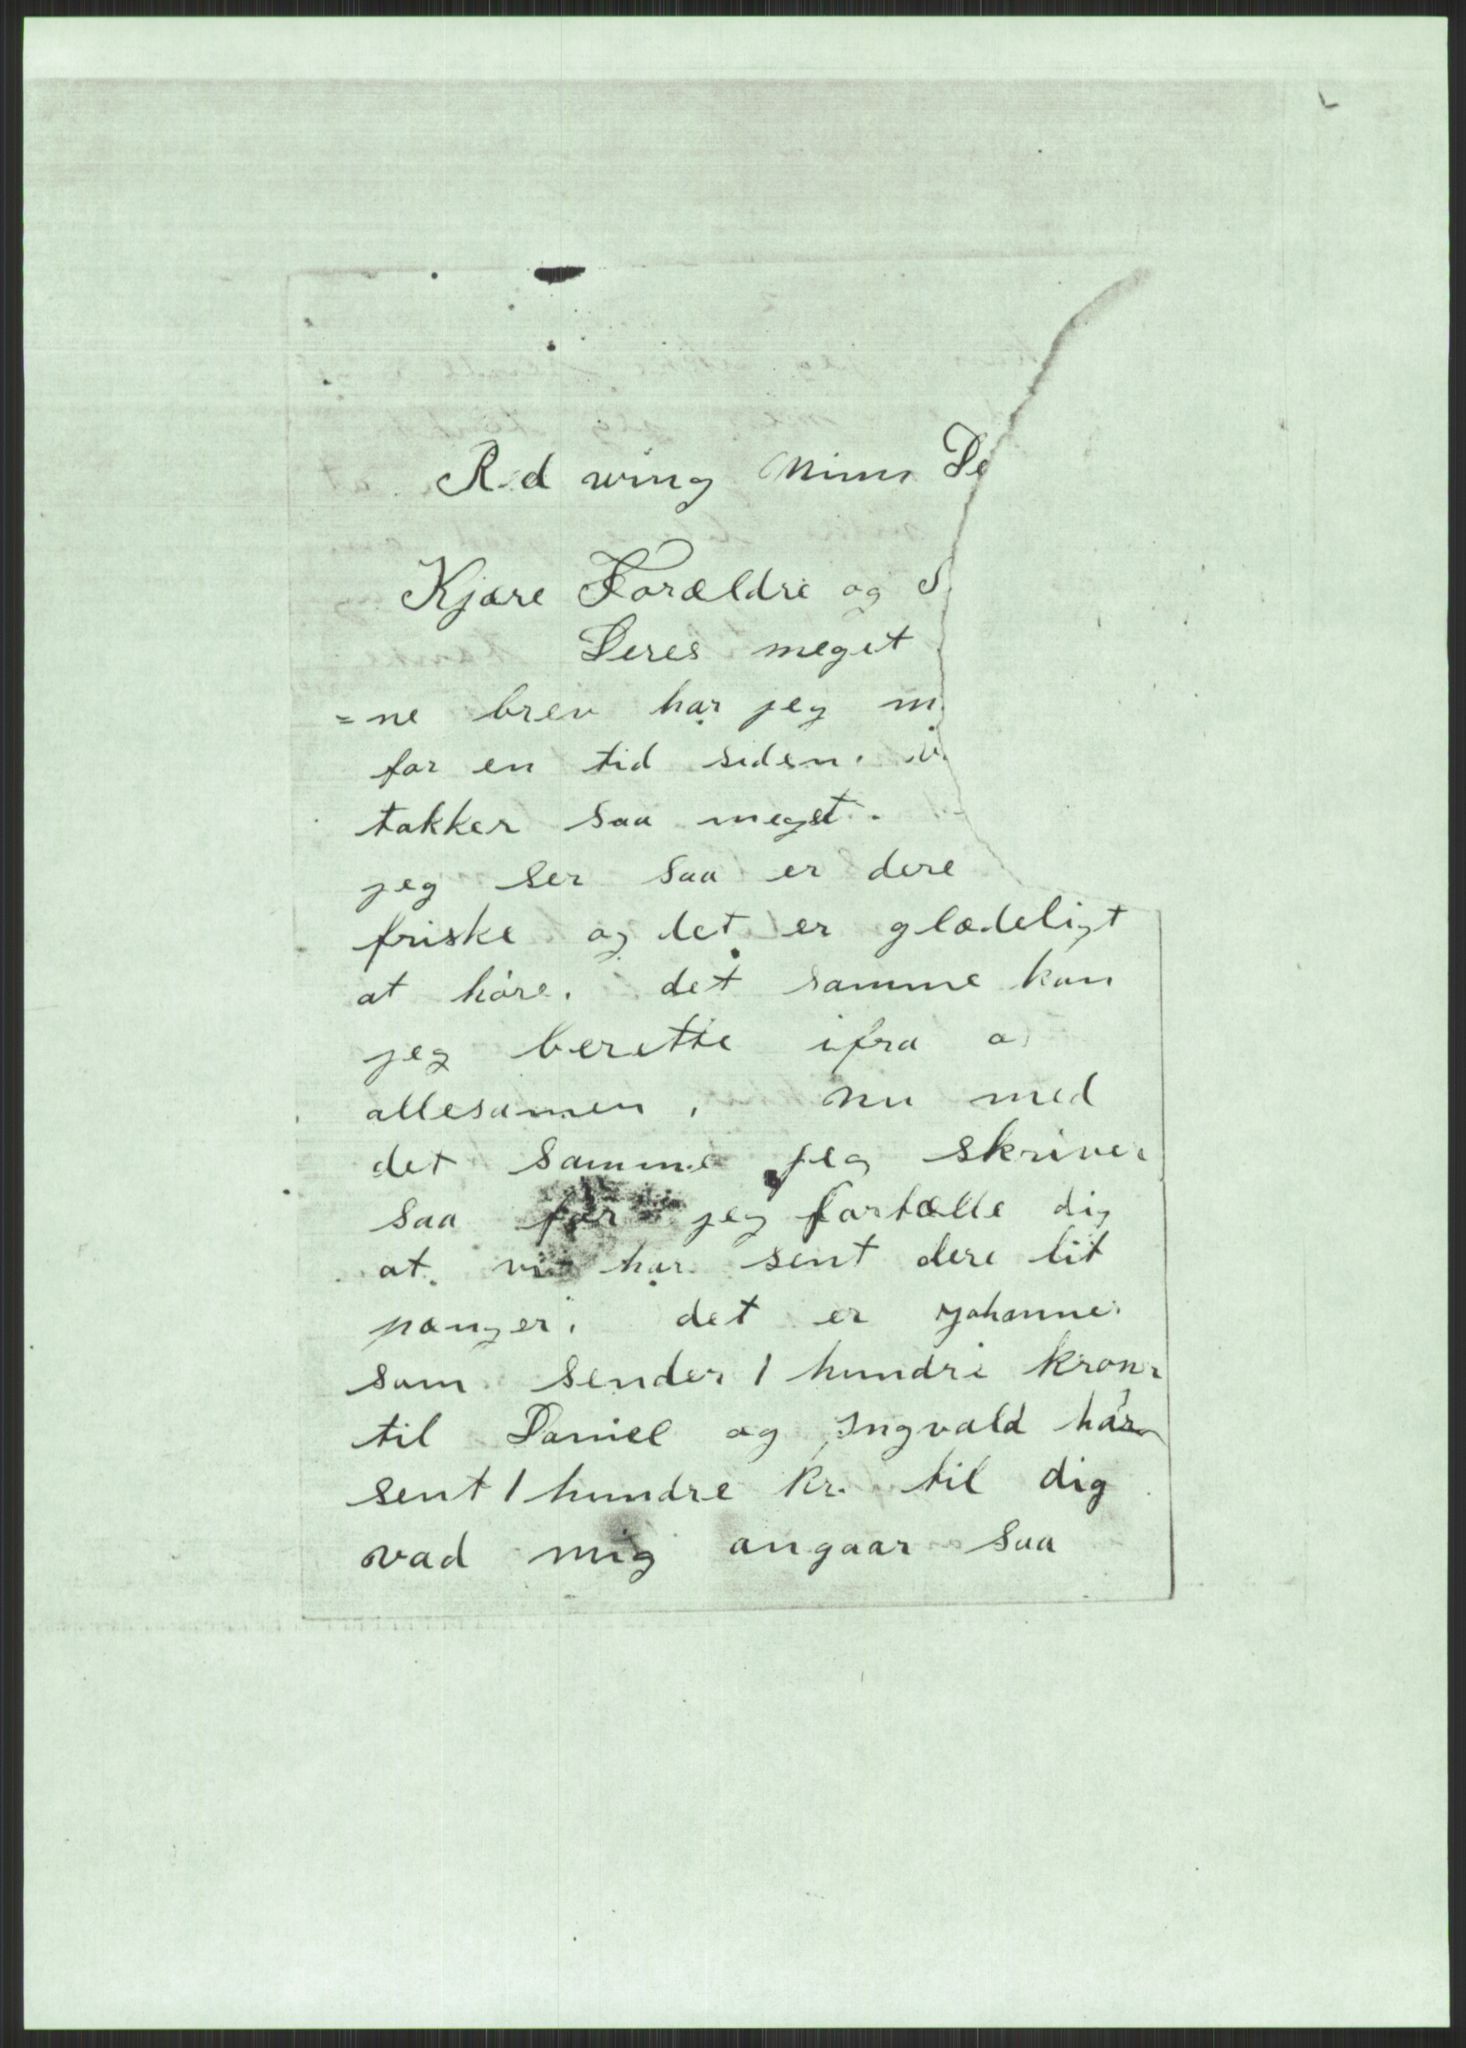 Red wing Minn De
Kjære Forældre og S
Deres meget
=ne brev har jeg m
for en tid siden. v
takker saa meget.
jeg ser saa er dere
friske og det er glædeligt
at höre. det samme kan
jeg berette ifra o
allesamen. nu med
det samme jeg skriver
saa får jeg fortælle dig
at vi har sent dere lit
pænger. det er Johannes
som sender 1 hundre kroner
til Daniel og Ingvald har
sent 1 hundre kr. til dig
vad mig angaar saa